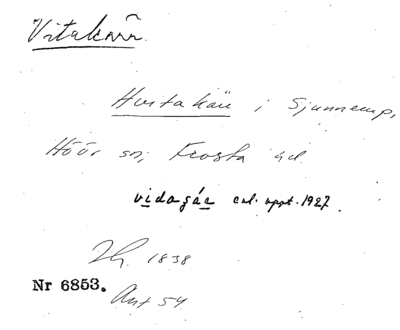 Vitakärr
Hvitakärr i Sjunnerup,
Höör sn, Frosta hd.
vidagár enl. uppt. 1927.
1838
Nr 6853.
Ant 54